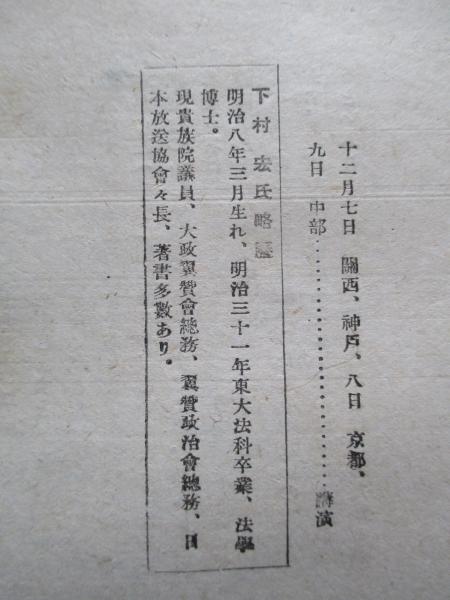 十二月七日　關西、神戸、八日　京都、
九日　中部‥‥‥‥‥‥‥‥‥‥‥‥講演
下村　宏氏略歴
明治八年三月生れ、明治三十一年東大法科卒業、法學
博士。
現貴族院議員、大政翼賛會總務、翼賛政治會總務、日
本放送協會々長、著書多數あり。